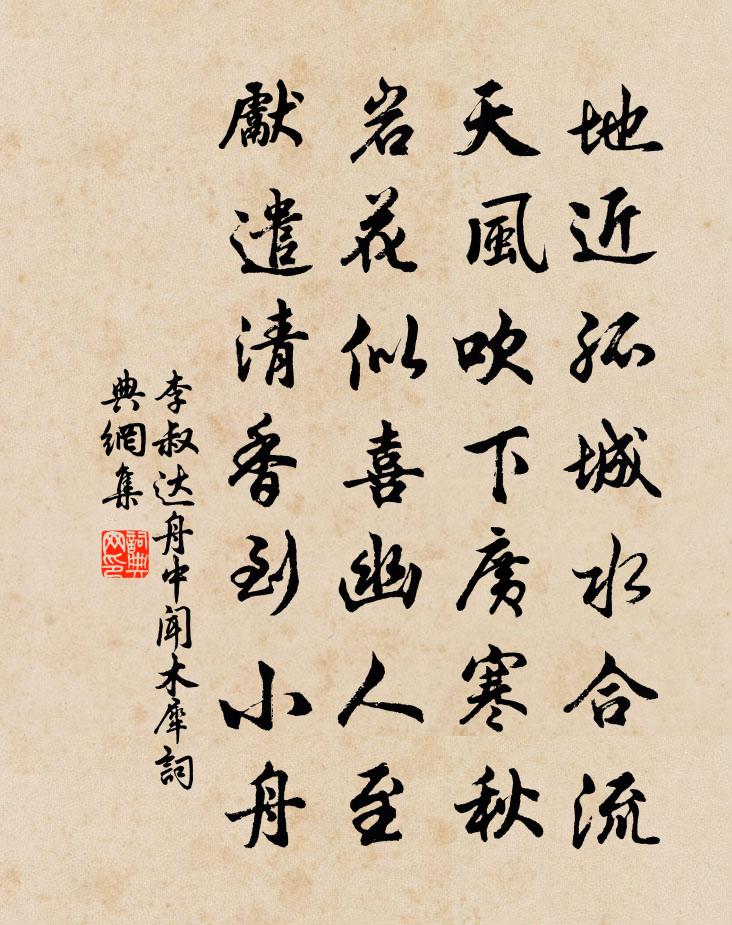 地近孤城水合流
天風吹下廣寒秋
岩花似喜幽人至
獻遣清香到小舟
李叔达舟中聞木犀詞
典網集
詞典
网印